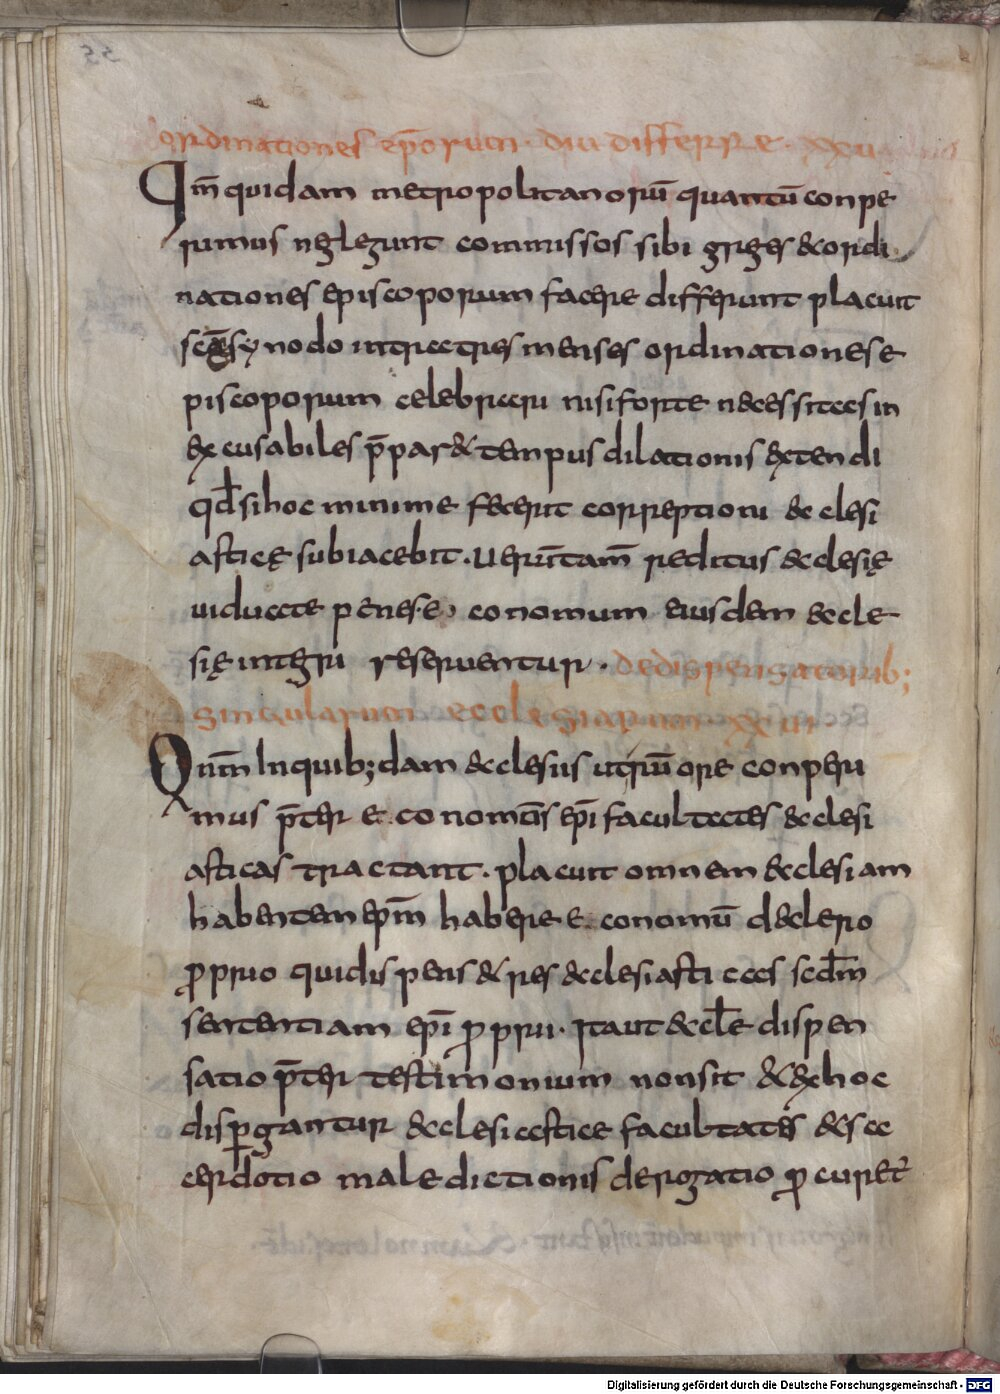 55
ordinationes ep̄orum · diu differre · xxu
Qm̄ quidam metropolitanorū quantū conpe
rimus neglegunt commissos sibi greges & ordi
nationes episcoporum facere differunt placuit
scāe synodo intra tres menses ordinationes e
piscoporum celebrari nisi forte necessitas in
excusabiles p̄par& tempus dilationis extendi
qđ si hoc minime fecerit correptioni &clesi
asticę subiacebit. uerūtam̄ reditus &clesię
uiduate penes e conomum eiusdem &cle
się integri reseruentur. de dispensatorib;
singularum ecclesiarum xxui
Qnm̄ In quib; dam &clesiis utrū ore conperi
mus p̄ter e conomūs ep̄i facultates &clesi
asticas tractant. placuit omnem &clesiam
habentem ep̄m habere e conomū de clero
proprio qui dispens& res &clesiasticas sec̄dm
sententiam ep̄i proprii. Ita ut &cl̄e dispen
satio p̄ter testimonium non sit & ex hoc
dispergantur &clesiastice facultates & sa
cerdotio maledictionis derogatio procuret̄
Digitalisierung gefördert durch die Deutsche Forschungsgemeinschaft - DFG